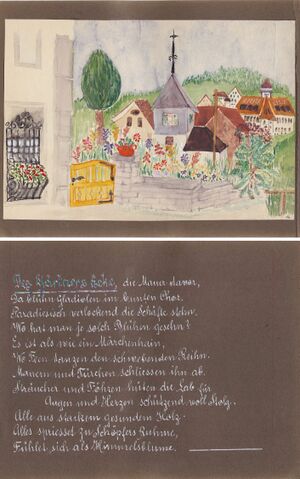 Des Gärtners Ecke, die Mauer davor,
Da blühn Gladiolen im bunten Chor.
Paradiesisch verlockend die Schäfte stehn.
Wo hat man je solch Blühen gesehn?
Es ist als wie ein Märchenhain,
Wo Feen tanzen den schwebenden Reihn.
Mauern und Türchen schliessen ihn ab.
Sträucher und Föhren hüten die Lab für
Augen und Herzen schützend voll Stolz.
Alle aus starkem gesundem Holz.
Alles spriesset zu Schöpfers Ruhme,
Fühlet sich als Himmelsblume.